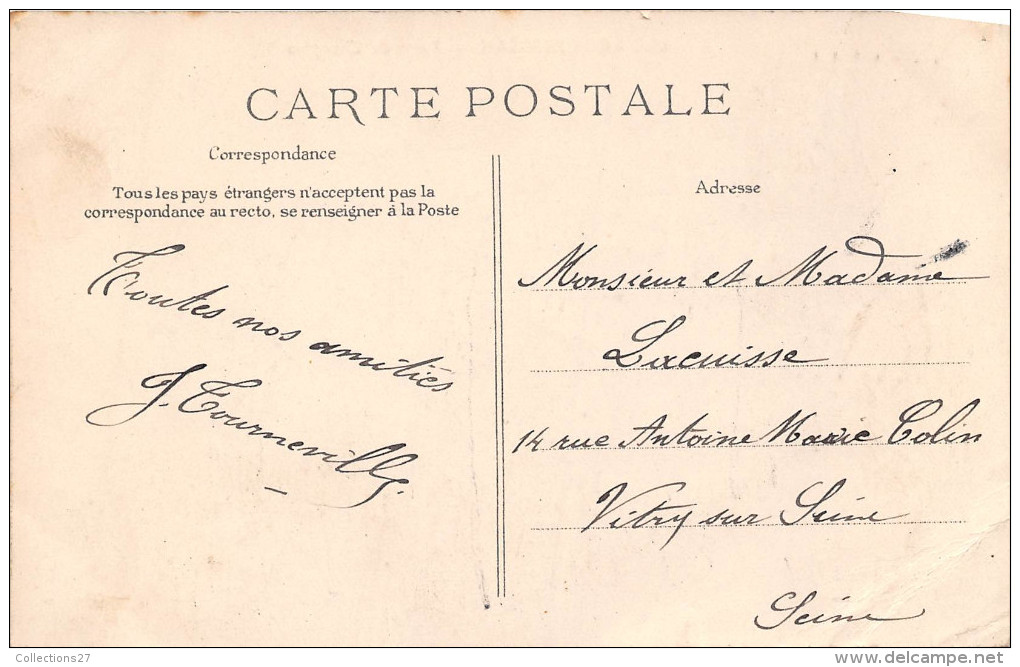 CARTE POSTALE
Correspondance
Tous les pays étrangers n'acceptent pas la
correspondance au recto, se renseigner à la Poste
Toutes nos amitiés
J. Tourneville.
Adresse
Monsieur et Madame
Lacuisse
14 rue Antoine Marie Colin
Vitry sur Seine
Seine
Collections27
www.delcampe.net